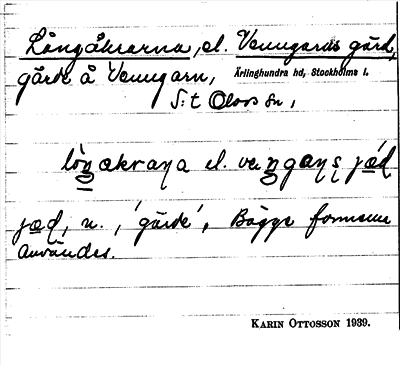 Långåkrarna, el. Venngarns gärd,
gärde å Venngarn, Ärlinghundra hd, Stockholms l.
S:t Olovs sn,
lòŋækraɳa el. veŋgaɳʂ jæ̀ɖ
jæɖ, n., 'gärde', Bägge formerna
användes.
KARIN OTTOSSON 1939.